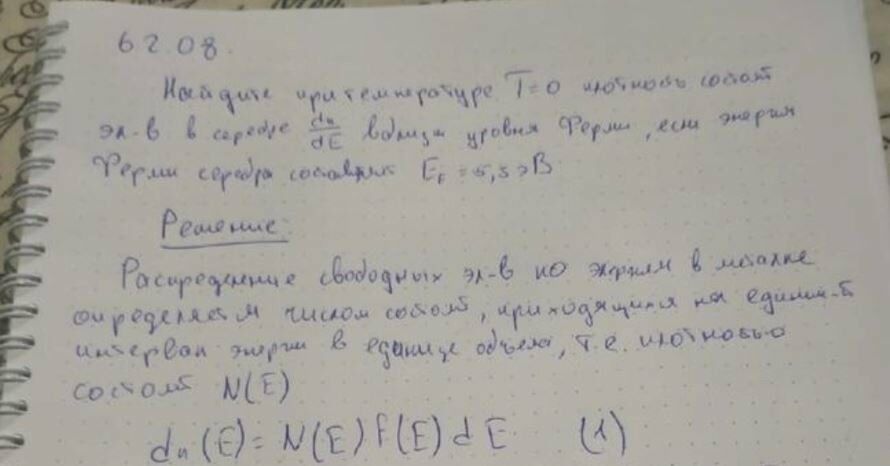 62.08.
Найдите при температуре T=0 плотность состояний
эл-в в серебре dn/dE вблизи уровня Ферми, если энергия
Ферми серебра составляет E_F = 5,5 эВ
Решение:
Распределение свободных эл-в по энергиям в металле
определяется числом состояний, приходящихся на единичный
интервал энергии в единице объема, т.е. плотностью
состояний N(E)
dn(E) = N(E) F(E) dE (1)